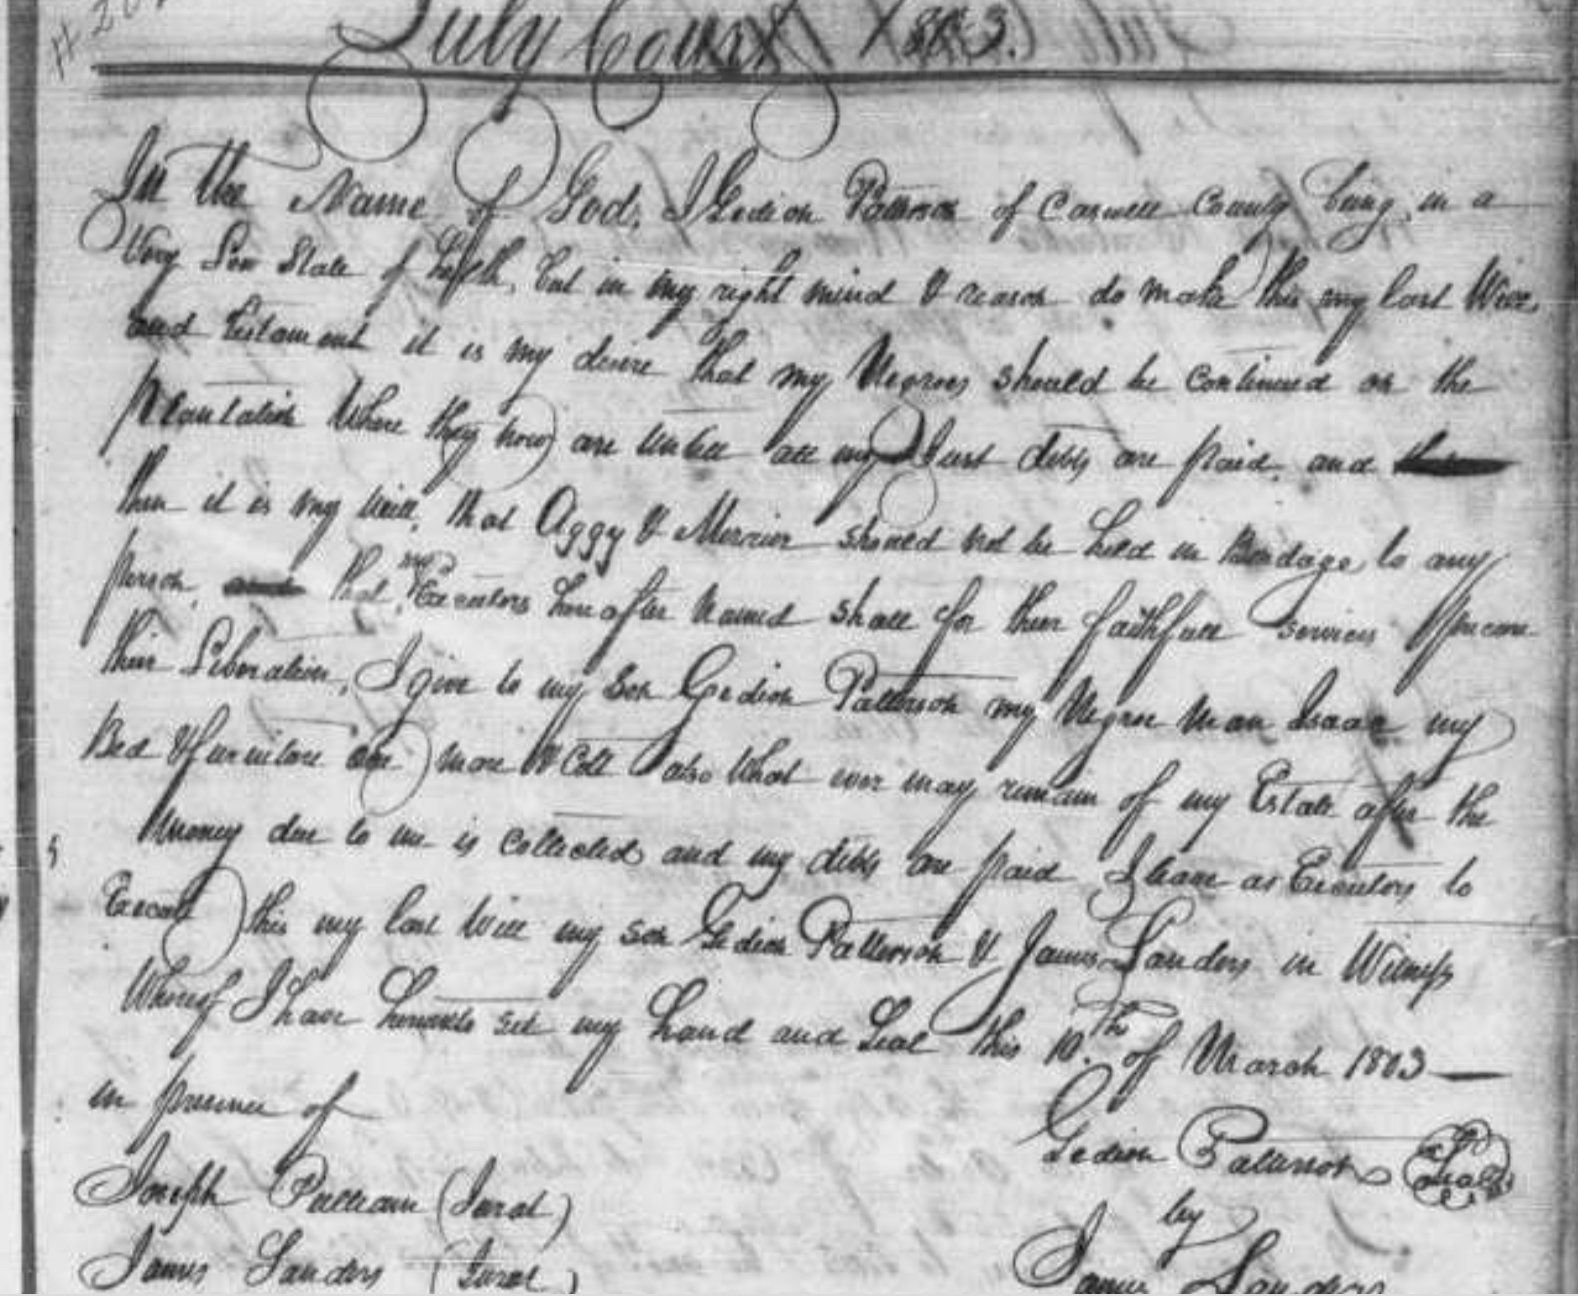 July Court 1803.
In the Name of God, I Gedion Patterson of Caswell County being in a
Very Low State of helth, but in my right mind & reason do make this my last Will
and testament it is my desire that my Negroes should be continued on the
plantation Where they now are untill all my Just debts are paid, and
then it is my will, that Aggy & should not be held in Bondage to any
person, that my Executors here after Named shall for their faithfull services procure
their Liberation, I give to my Son Gedion Patterson my Negroe Man Isaac my
Bed & furniture one mare & Colt also What ever may remain of my Estate after the
Money due to me is collected and my debts are paid I leave as Executors to
Execute this my last Will my son Gedion Patterson & James Sanders in Witness
Whereof I have hereunto set my hand and Seal this 10.th of March 1803
in presence of
Gedion Patterson Seal
Joseph Pulliam (Jurat)
by
James Sanders (Jurat)
James Sanders